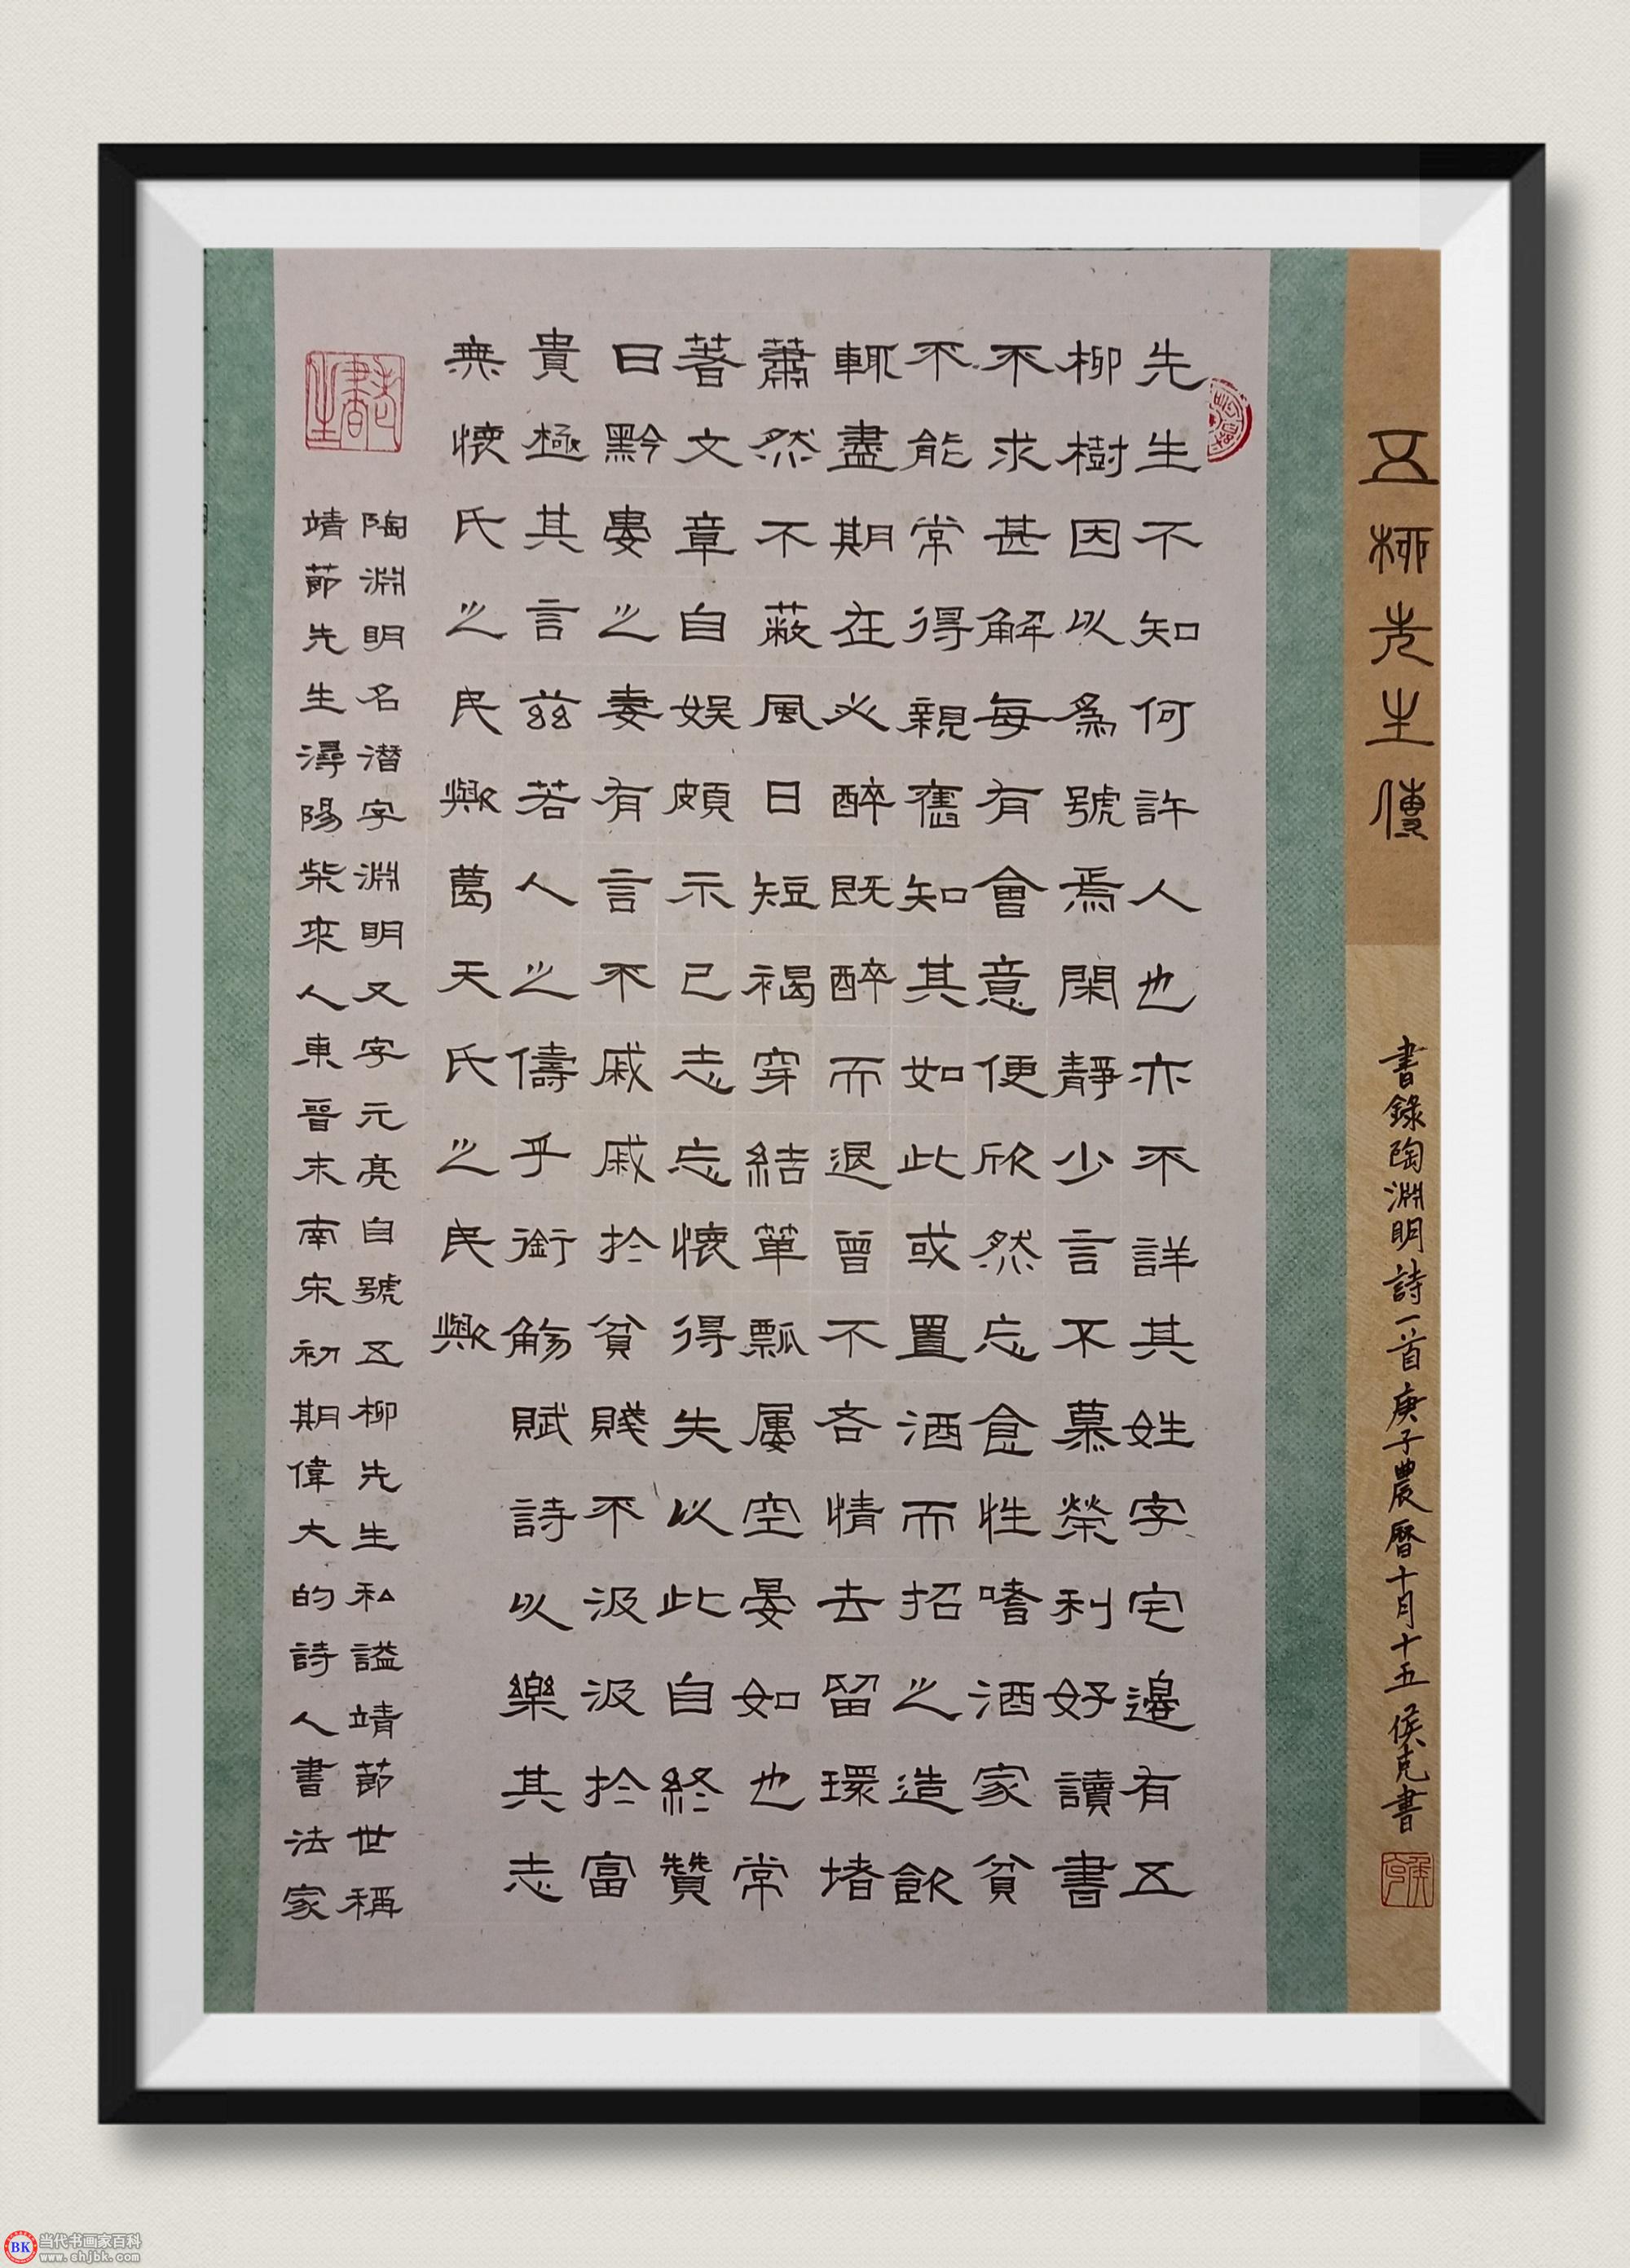 五柳先生傳
書錄陶淵明詩一首庚子農曆十月十五侯克書
先生不知何許人也亦不詳其姓字宅邊有五
柳樹因以爲號焉閑靜少言不慕榮利好讀書
不求甚解每有會意便欣然忘食性嗜酒家貧
不能常得親舊知其如此或置酒而招之造飲
輒盡期在必醉既醉而退曾不吝情去留環堵
蕭然不蔽風日短褐穿結簞瓢屢空晏如也常
著文章自娛頗示己志忘懷得失以此自終贊
曰黔婁之妻有言不戚戚於貧賤不汲汲於富
貴極其言茲若人之儔乎銜觴賦詩以樂其志
無懷氏之民歟葛天氏之民歟
陶淵明名潜字淵明又字元亮自號五柳先生私謚靖節世稱
靖節先生潯陽柴來人東晉末南宋初期偉大的詩人書法家
BK 当代书画家百科
www.shjbk.com